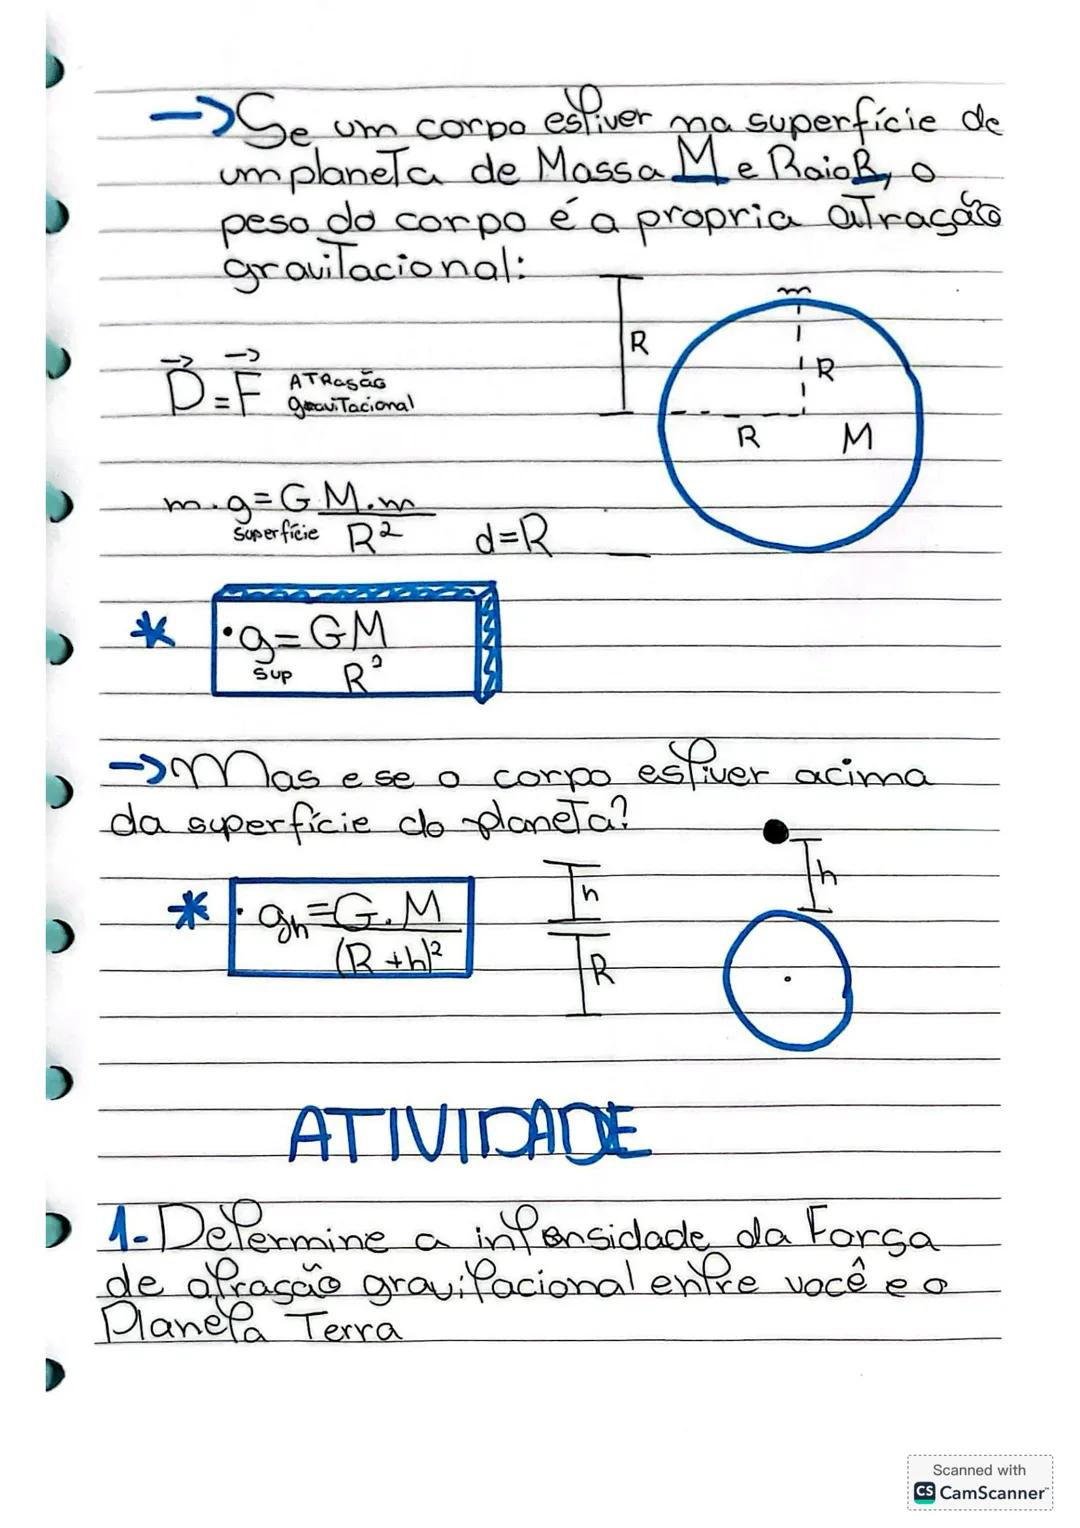 ->Se um corpo estiver na superfície de
um planeta de Massa M e Raio R, o
peso do corpo é a propria atração
gravitacional:
m
R
R
P=F ATRação
gravitacional
R M
m.g=G M.m
superfície R² d=R
* •g=GM
sup R²
->Mas e se o corpo estiver acima
da superfície do planeta?
h
h
* •gh=G.M
(R+h)²
R
ATIVIDADE
1-Determine a intensidade da Força
de atração gravitacional entre você e o
Planeta Terra
Scanned with
CS CamScanner